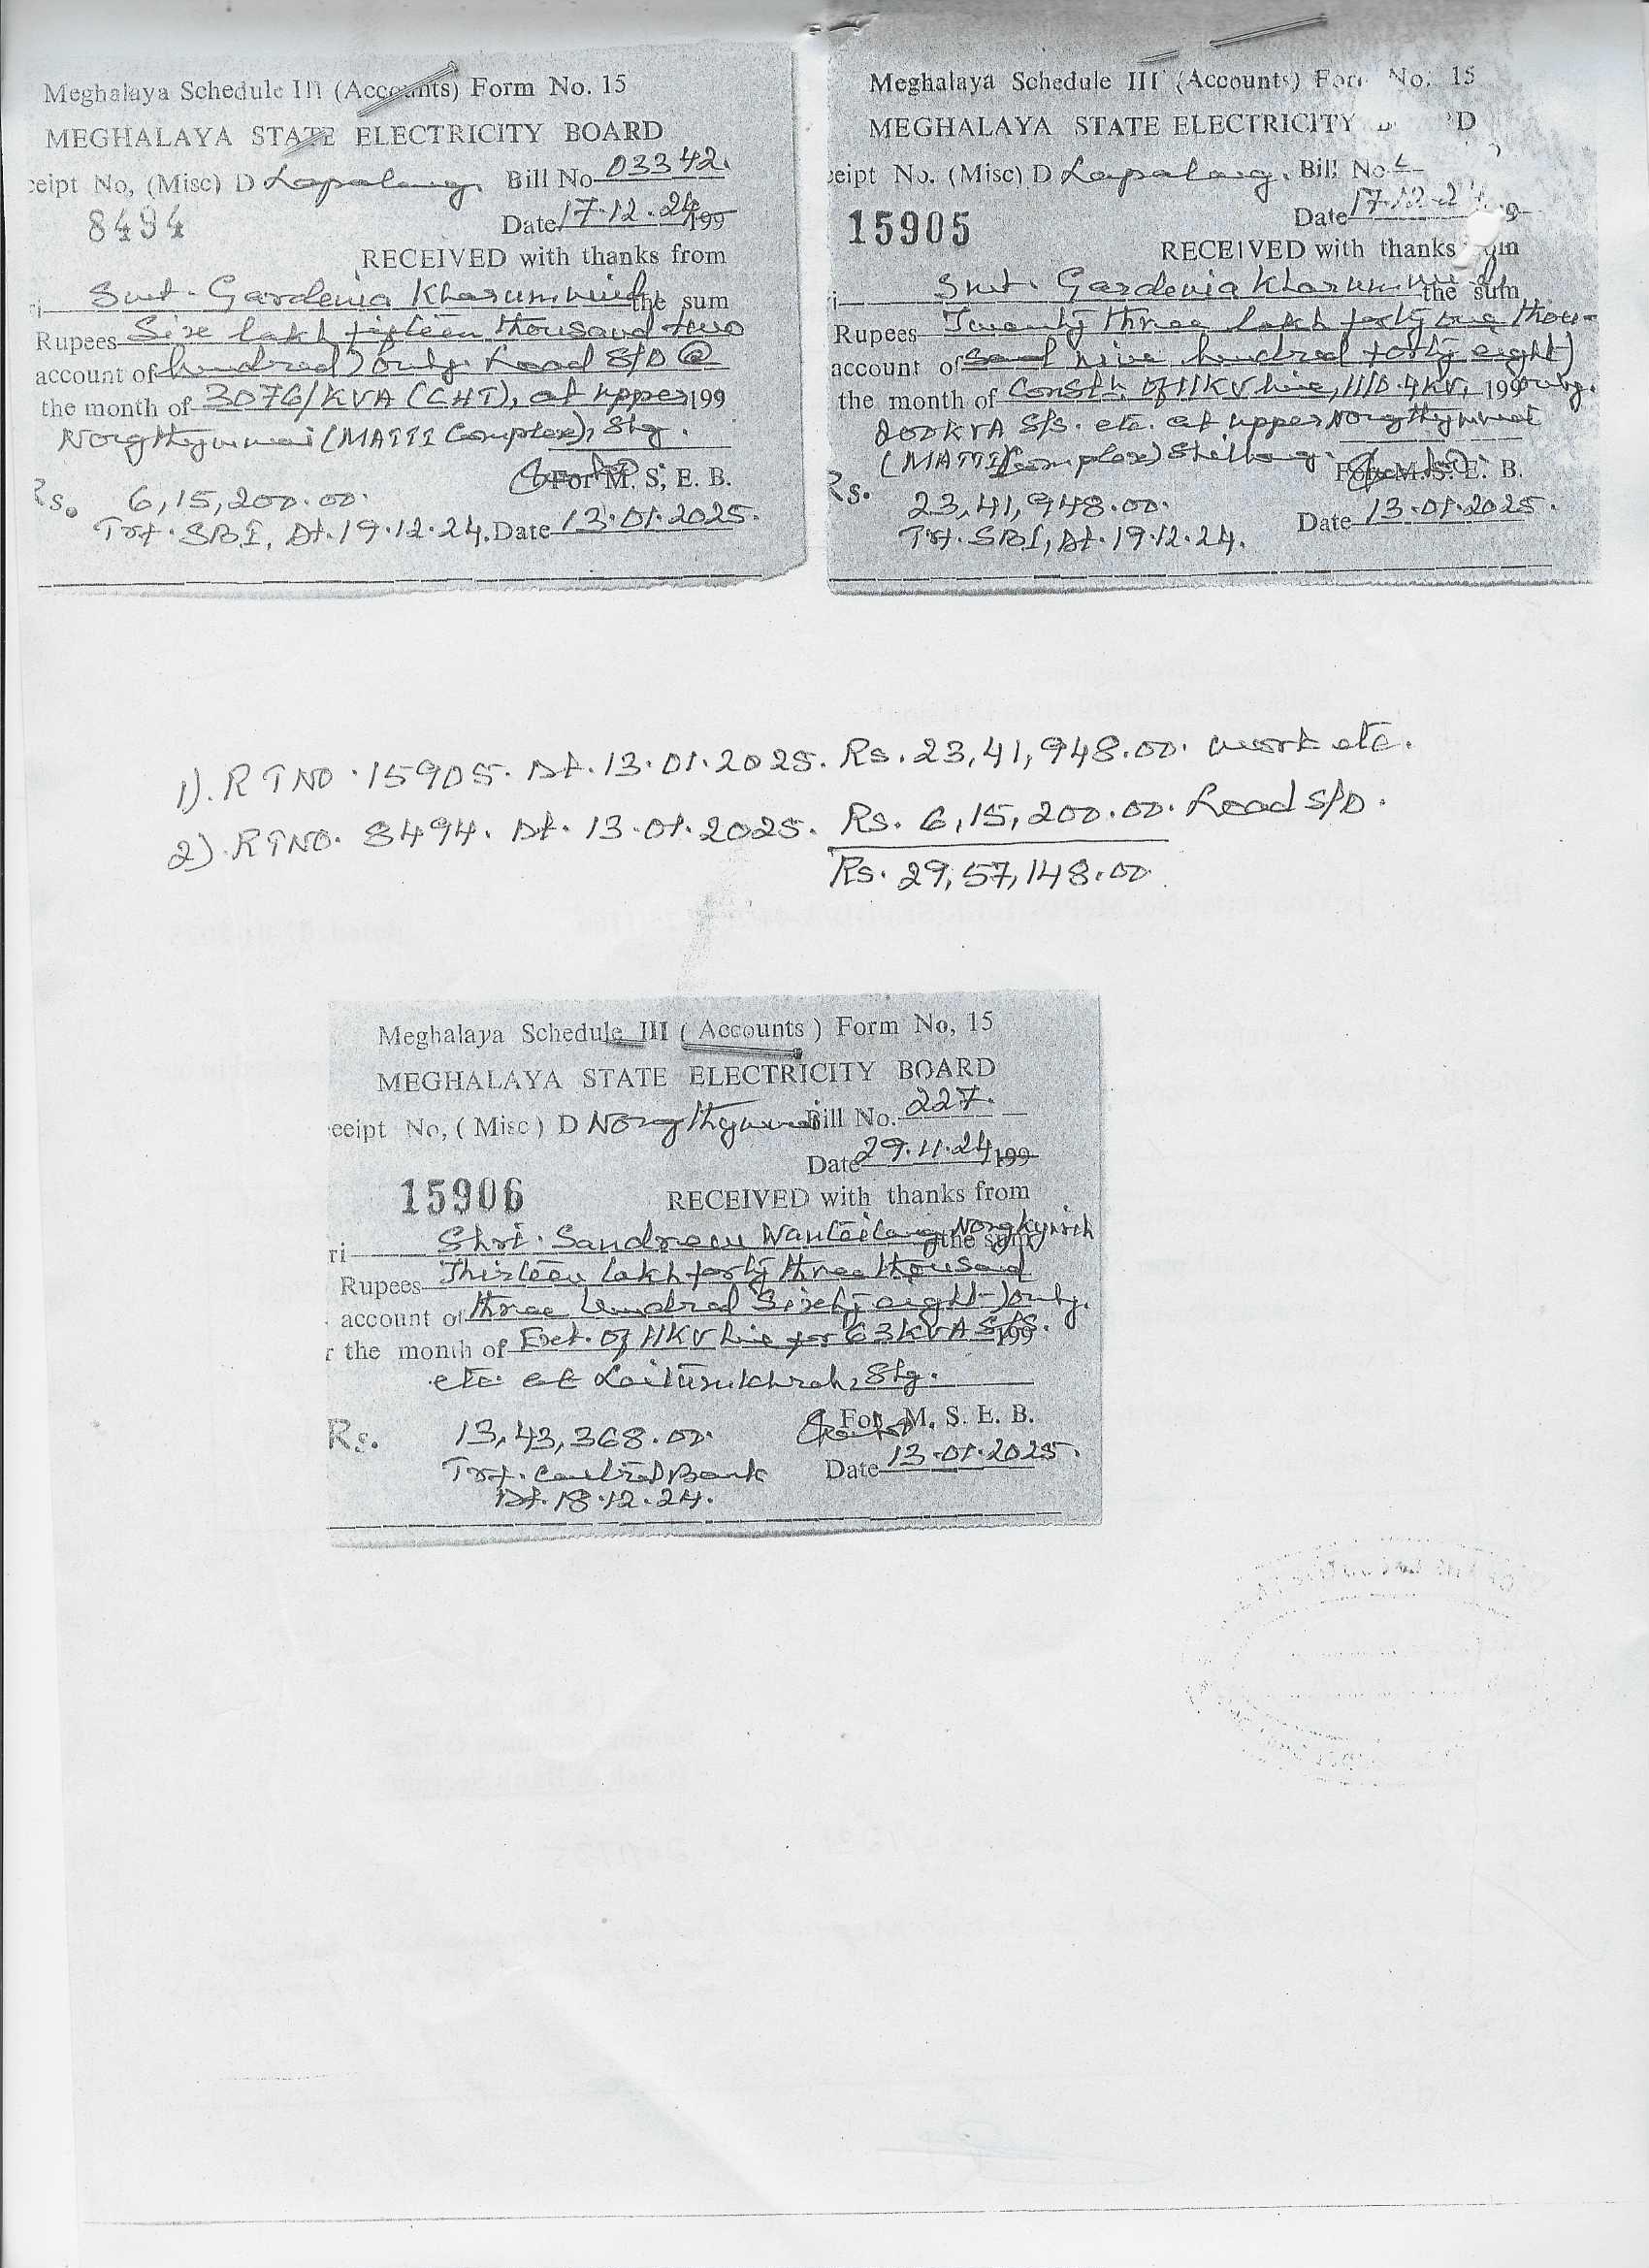 Meghalaya Schedule III (Accounts) Form No. 15
MEGHALAYA STATE ELECTRICITY BOARD
ceipt No, (Misc) D Lapalang. Bill No 03342.
8494
Date 17.12.24 199
RECEIVED with thanks from
ri Smt. Gardenia Kharumnuid the sum
Rupees Six lakh fifteen thousand two
account of hundred) only. Load S/D @
the month of 3076/KVA (CHT), at upper 199
Nongthymmai (MATTI Complex), Shg.
For M. S, E. B.
Rs. 6,15,200.00.
Trf. SBI, Dt. 19.12.24. Date 13.01.2025.
Meghalaya Schedule III (Accounts) For No. 15
MEGHALAYA STATE ELECTRICITY B D
eipt No. (Misc) D Lapalang. Bill No.
Date 17.12.2
15905
RECEIVED with thanks
ri Smt. Gardenia Kharumnuid the sum
Rupees Twenty three lakh forty one thou-
account of sand nine hundred forty eight)
the month of Constn. of 11KV line, 11/0.4KV, 199 only.
200KVA S/S. etc. at upper Nongthymmai
(MATTI Complex) Shillong.
For M. S. E. B.
Rs. 23,41,948.00.
Trf. SBI, Dt. 19.12.24.
Date 13.01.2025.
1). RTNO. 15905. Dt. 13.01.2025. Rs. 23,41,948.00. work etc.
2). RTNO. 8494. Dt. 13.01.2025. Rs. 6,15,200.00. Load S/D.
Rs. 29,57,148.00.
Meghalaya Schedule III ( Accounts ) Form No, 15
MEGHALAYA STATE ELECTRICITY BOARD
eceipt No, ( Misc ) D Nongthymmai Bill No. 227.
Date 29.11.24 199
15906
RECEIVED with thanks from
ri Shri. Sandrew Wanteilang Nongkynrih the sum
Rupees Thirteen lakh forty three thousand
account of three hundred Sixty eight) only.
r the month of Ext. of 11KV line for 63KVA S/S. 199
etc. at Laitumkhrah, Shg.
For M. S. E. B.
Rs. 13,43,368.00.
Trf. Central Bank
Date 13.01.2025.
Dt. 18.12.24.